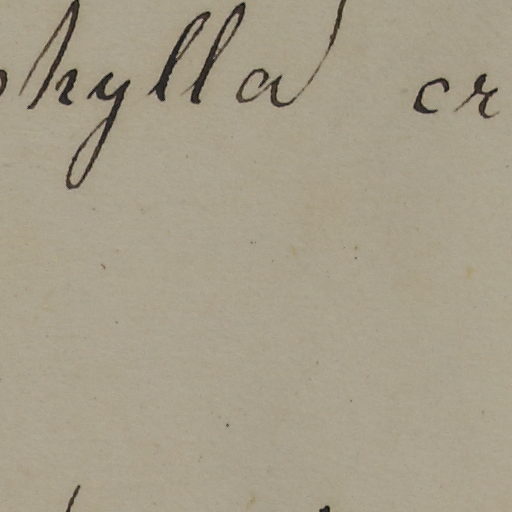 phylla cr